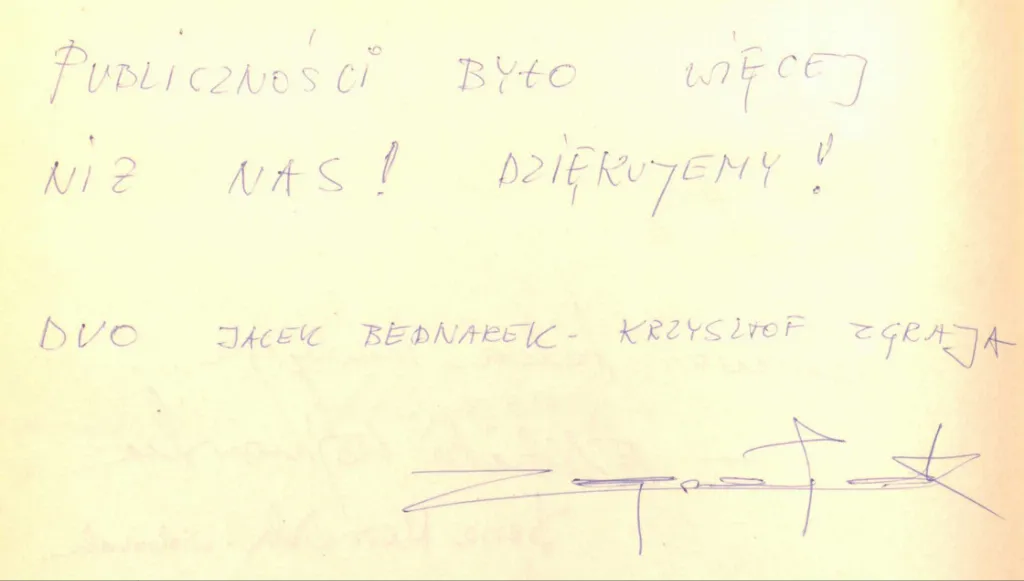 PUBLICZNOŚCI BYŁO WIĘCEJ
NIŻ NAS! DZIĘKUJEMY!
DUO JACEK BEDNAREK - KRZYSZTOF ZGRAJA